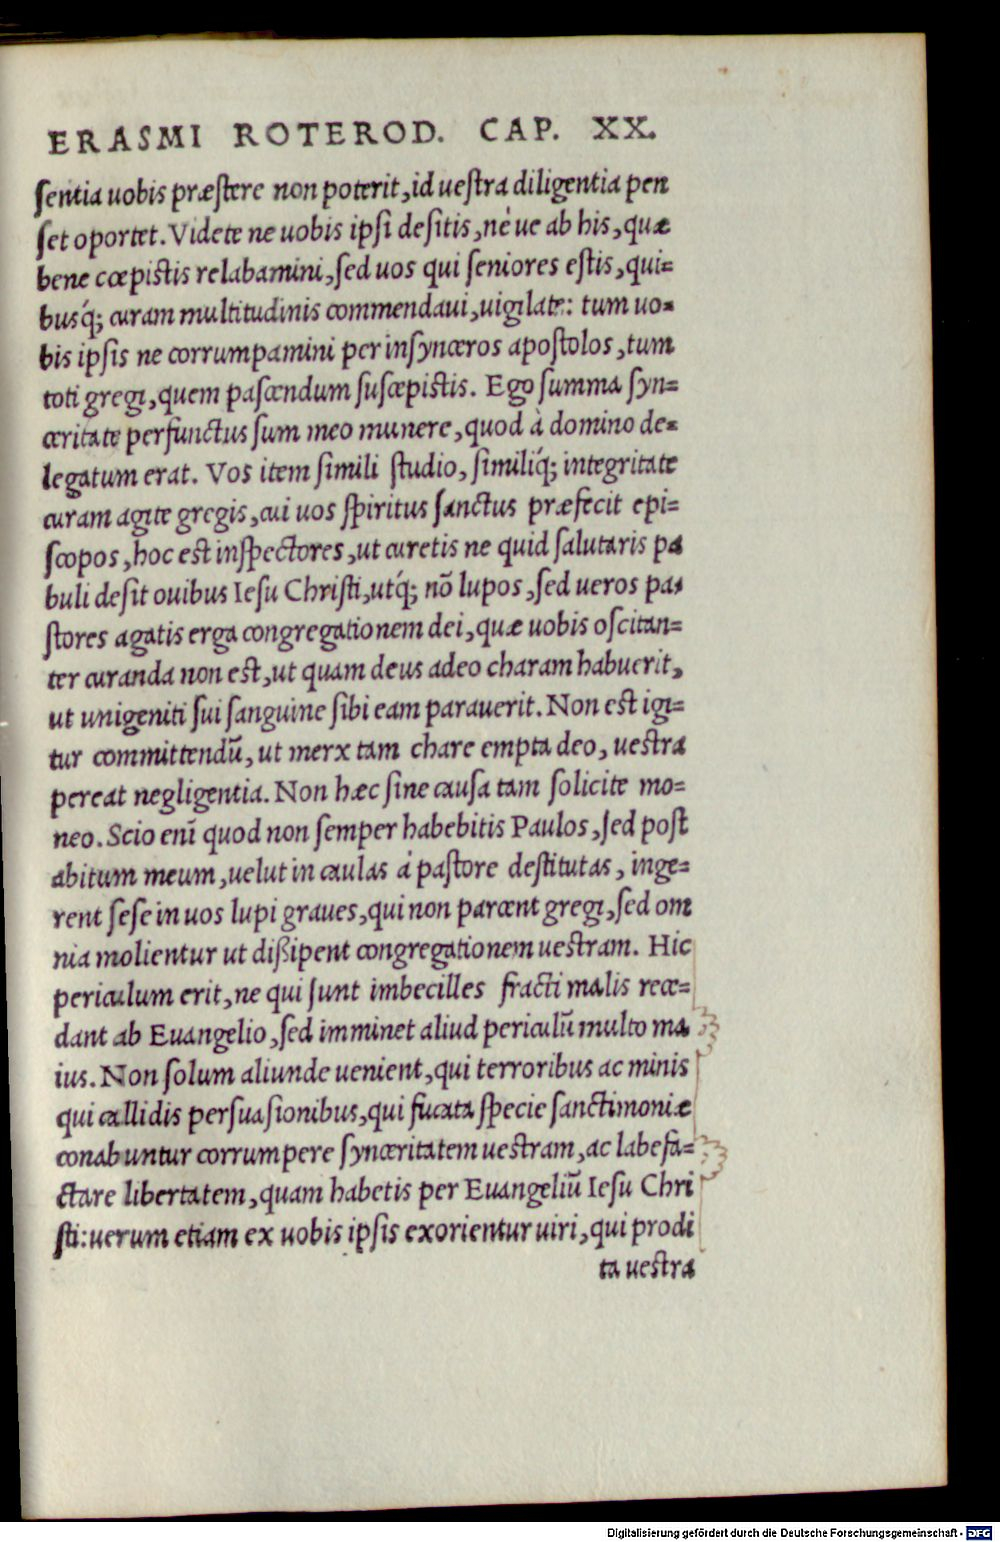 ERASMI ROTEROD. CAP. XX.
sentia uobis præstere non poterit, id uestra diligentia pen
set oportet. Videte ne uobis ipsi desitis, nè ue ab his, quæ
bene cœpistis relabamini, sed uos qui seniores estis, qui=
busq́; curam multitudinis commendaui, uigilate: tum uo=
bis ipsis ne corrumpamini per insynceros apostolos, tum
toti gregi, quem pascendum suscepistis. Ego summa syn=
ceritate perfunctus sum meo munere, quod à domino de=
legatum erat. Vos item simili studio, similiq́; integritate
curam agite gregis, cui uos spiritus sanctus præfecit epi=
scopos, hoc est inspectores, ut curetis ne quid salutaris pa
buli desit ouibus Iesu Christi, utq́; nõ lupos, sed ueros pa=
stores agatis erga congregationem dei, quæ uobis oscitan=
ter curanda non est, ut quam deus adeo charam habuerit,
ut unigeniti sui sanguine sibi eam parauerit. Non est igi=
tur committendũ, ut merx tam chare empta deo, uestra
pereat negligentia. Non hæc sine causa tam solicite mo=
neo. Scio enĩ quod non semper habebitis Paulos, sed post
abitum meum, uelut in caulas á pastore destitutas, inge=
rent sese in uos lupi graues, qui non parcent gregi, sed om
nia molientur ut dißipent congregationem uestram. Hic
periculum erit, ne qui sunt imbecilles fracti malis rece=
dant ab Euangelio, sed imminet aliud periculũ multo ma
ius. Non solum aliunde uenient, qui terroribus ac minis
qui callidis persuasionibus, qui fucata specie sanctimoniæ
conabuntur corrumpere synceritatem uestram, ac labefa=
ctare libertatem, quam habetis per Euangeliũ Iesu Chri
sti: uerum etiam ex uobis ipsis exorientur uiri, qui prodi
ta uestra
Digitalisierung gefördert durch die Deutsche Forschungsgemeinschaft - DFG